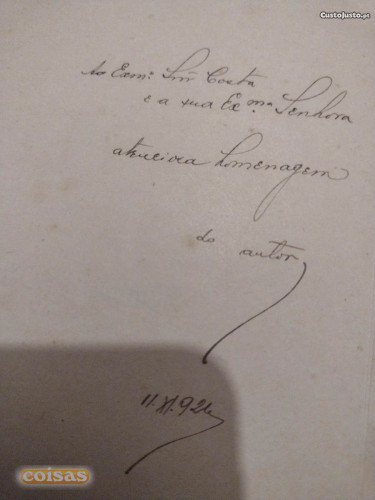 CustoJusto.pt
Ao Exmº. Snr Costa
e a sua Exma Senhora
atenciosa homenagem
do autor,
11.XI.924
coisas